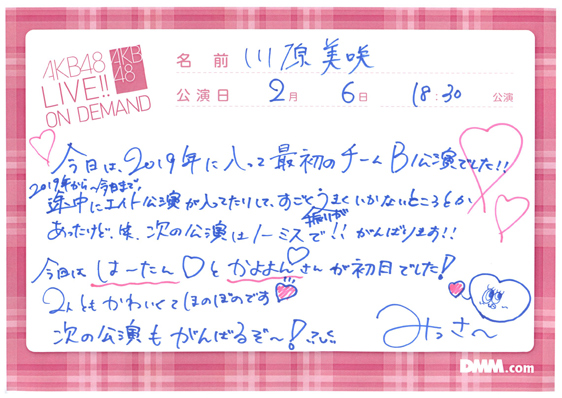 AKB48
LIVE!!
ON DEMAND
AKB
48
名前 川原美咲
公演日 2月 6日 18:30 公演
今日は、2019年に入って最初のチームB公演でした!!
2019年から〜今日まで、
途中にエイト公演が入ってたりして、すごくうまくいかないところとか
振りが
あったけど、次の公演はノーミスで!! がんばります!!
今日は はーたん♡と かよよんさん が初日でした!
2人ともかわいくてほのぼのです
次の公演もがんばるぞ〜!
みっさ〜
DMM.com